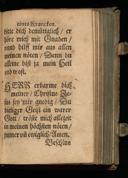 eines Krancken.
bitte dich demütiglich / er
höre mich mit Gnaden /
und hilff mir aus allen
meinen nöten / Denn du
alleine bist ja mein Heil
und trost.
HERR erbarme dich
meiner / Christus Je-
sus sey mir gnedig / Du
heiliger Geist ein warer
Gott / tröste mich allezeit
in meinen höchsten nöten /
immer uñ ewiglich / Amen.
Beschlus